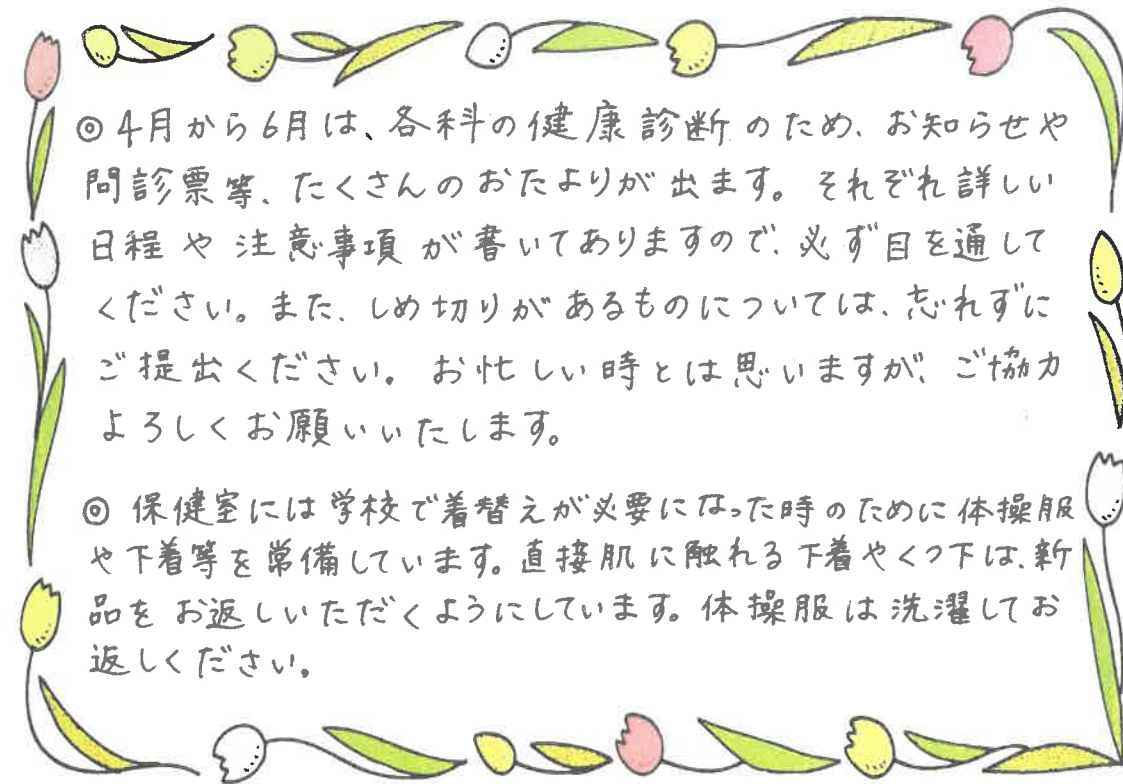 ◎4月から6月は、各科の健康診断のため、お知らせや
問診票等、たくさんのおたよりが出ます。それぞれ詳しい
日程や注意事項が書いてありますので、必ず目を通して
ください。また、しめ切りがあるものについては、忘れずに
ご提出ください。お忙しい時とは思いますが、ご協力
よろしくお願いいたします。
◎保健室には学校で着替えが必要になった時のために体操服
や下着等を常備しています。直接肌に触れる下着やくつ下は、新
品をお返しいただくようにしています。体操服は洗濯してお
返しください。